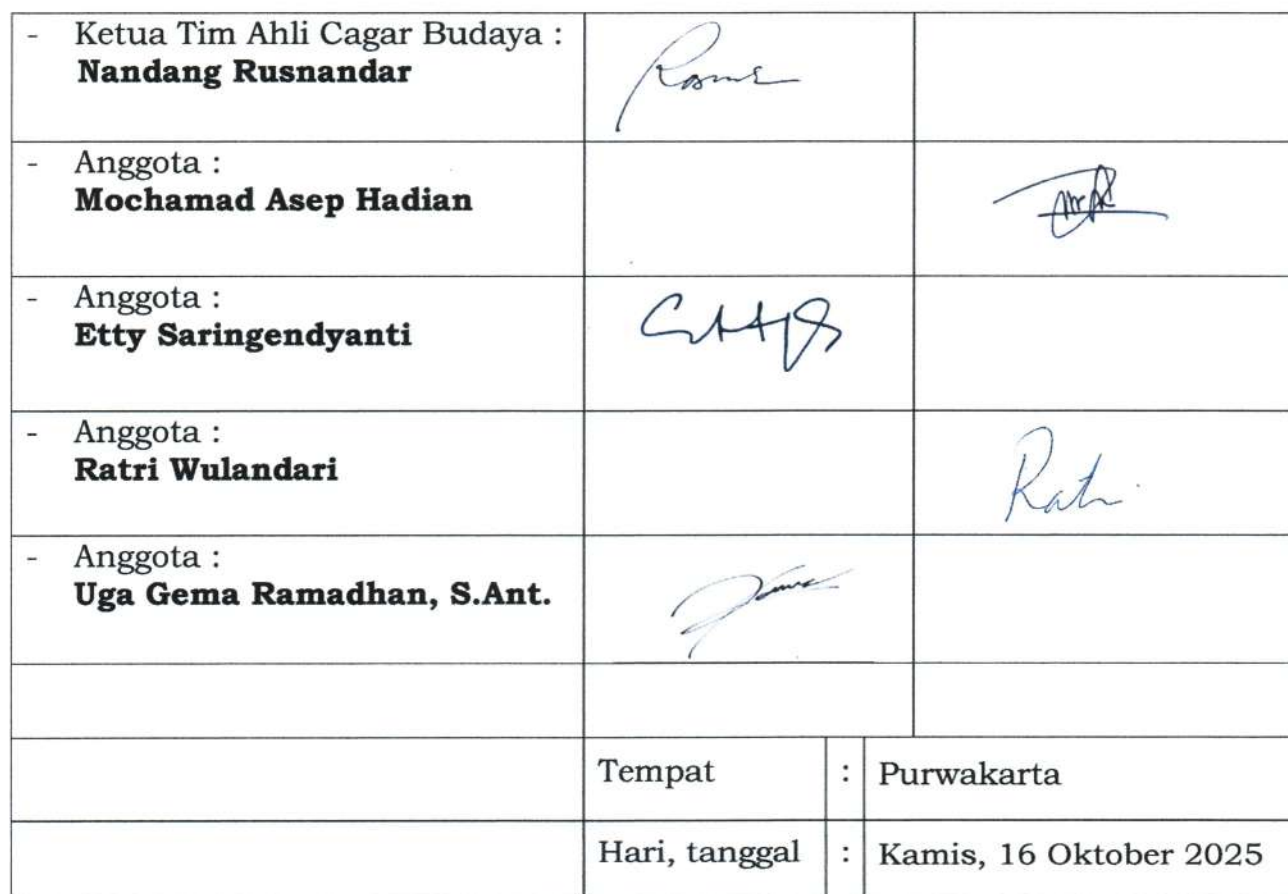 - Ketua Tim Ahli Cagar Budaya :
Nandang Rusnandar
- Anggota :
Mochamad Asep Hadian
- Anggota :
Etty Saringendyanti
- Anggota :
Ratri Wulandari
Ratri
- Anggota :
Uga Gema Ramadhan, S.Ant.
Tempat : Purwakarta
Hari, tanggal : Kamis, 16 Oktober 2025